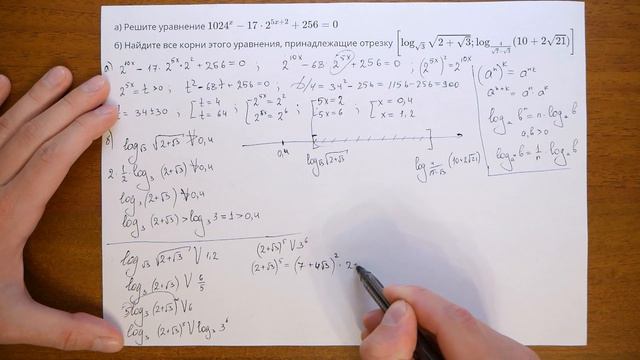 а) Решите уравнение 1024^x − 17 · 2^(5x+2) + 256 = 0
б) Найдите все корни этого уравнения, принадлежащие отрезку
а) 2^(10x) − 17 · 2^(5x) · 2² + 256 = 0 ; 2^(10x) − 68 · 2^(5x) + 256 = 0 ; (2^(5x))² = 2^(10x)
2^(5x) = t > 0 ; t² − 68t + 256 = 0 ; D/4 = 34² − 256 = 1156 − 256 = 900
t = 34 ± 30 ; [t = 4 t = 64 ; [2^(5x) = 2² 2^(5x) = 2⁶ ; [5x = 2 5x = 6 ; [x = 0,4 x = 1,2
(aⁿ)^k = a^(nk)
a^(n+k) = aⁿ · a^k
log_a bⁿ = n · log_a b
a, b > 0
б) log_√3 √(2+√3) V 0,4
0,4 log_√3 √(2+√3)
2 · 1/2 log₃ (2+√3) V 0,4
log₃ (2+√3) V 0,4
log₃ (2+√3) > log₃ 3 = 1 > 0,4
log_√3 √(2+√3) V 1,2
log₃ (2+√3) V 6/5
5 log₃ (2+√3) V 6
log₃ (2+√3)⁵ V log₃ 3⁶
(2+√3)⁵ V 3⁶
(2+√3)⁵ = (7 + 4√3)² · 2+